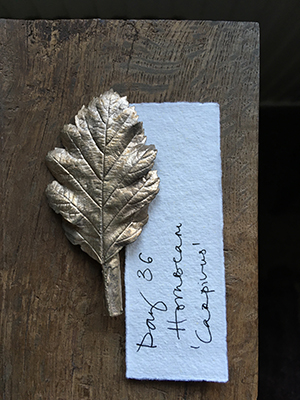 Day 36
Hornbeam
'Carpinus'